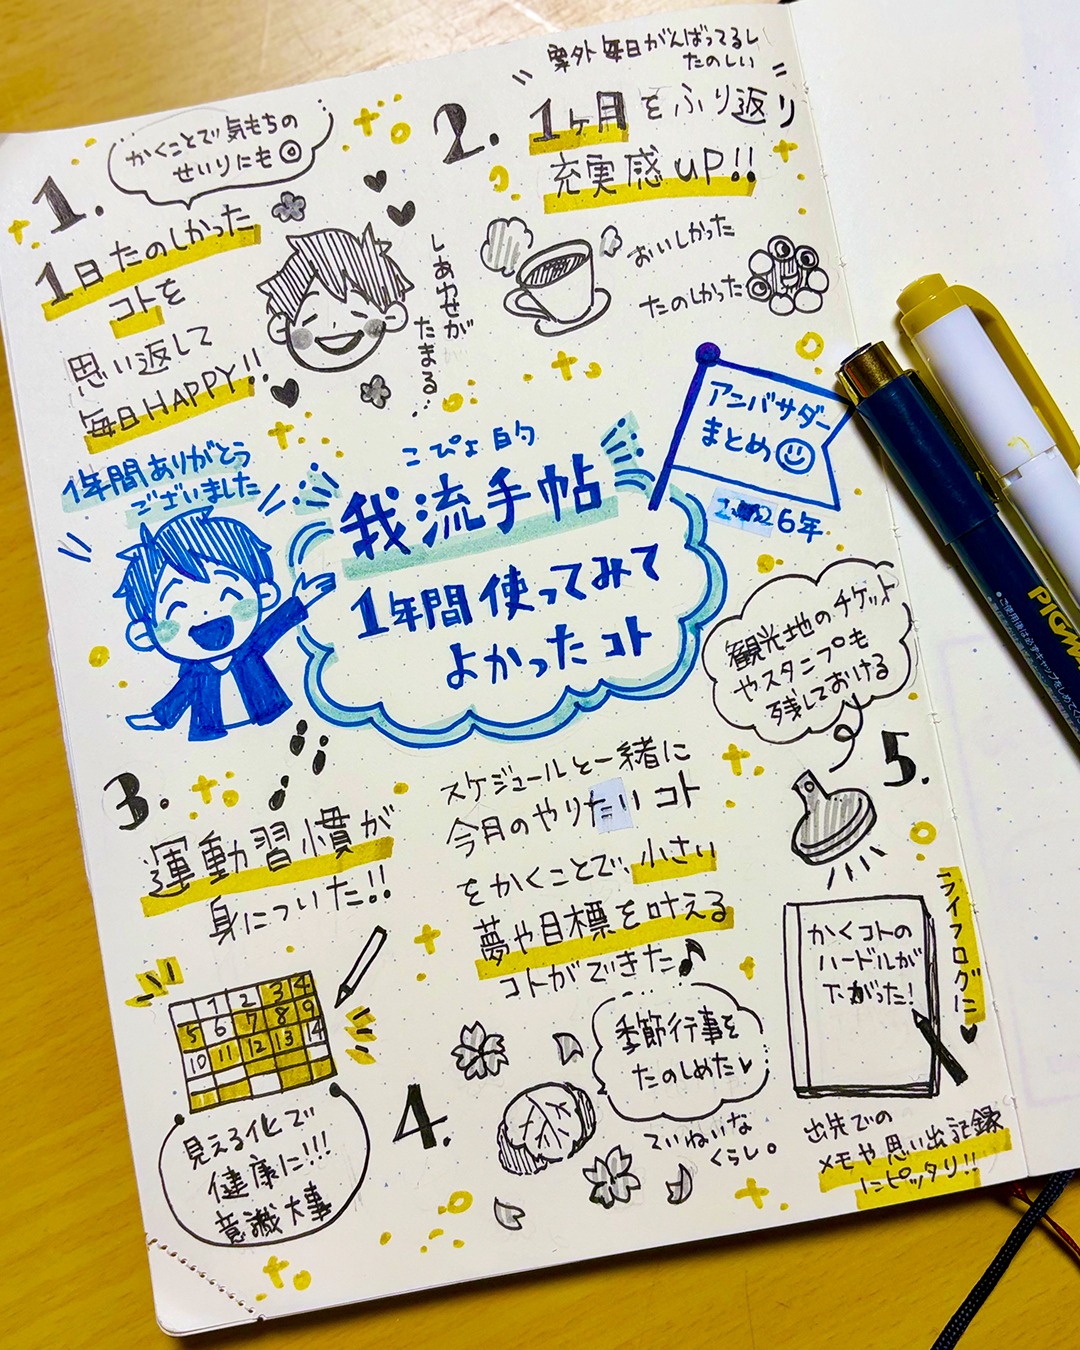 かくことで気もちの
せいりにも◎
1.
1日たのしかった
コトを
思い返して
毎日HAPPY!!
しあわせが
たまる…
案外毎日がんばってるし
たのしい
2.
1ヶ月をふり返り
充実感UP!!
おいしかった
たのしかった
1年間ありがとう
ございました
こぴょ的
我流手帖
1年間使ってみて
よかったコト
アンバサダー
まとめ
2026年
3.
運動習慣が
身についた!!
1 2 3 4
5 6 7 8 9
10 11 12 13 14
見える化で
健康に!!!
意識大事
スケジュールと一緒に
今月のやりたいコト
をかくことで、小さい
夢や目標を叶える
コトができた♪
4.
季節行事を
たのしめた♥
ていねいな
くらし。
観光地のチケット
やスタンプも
残しておける
5.
かくコトの
ハードルが
下がった!
ライフログに♥
出先での
メモや思い出記録
にピッタリ!!
PIGM